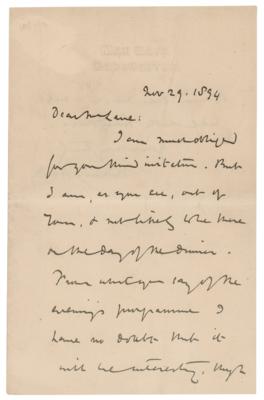 Nov 29. 1894
Dear Mr Lane:
I am much obliged
for your kind invitation. But
I am, as you see, out of
Town, & not likely to be there
on the day of the dinner.
From what you say of the
evening's programme I
have no doubt that it
will be interesting, though